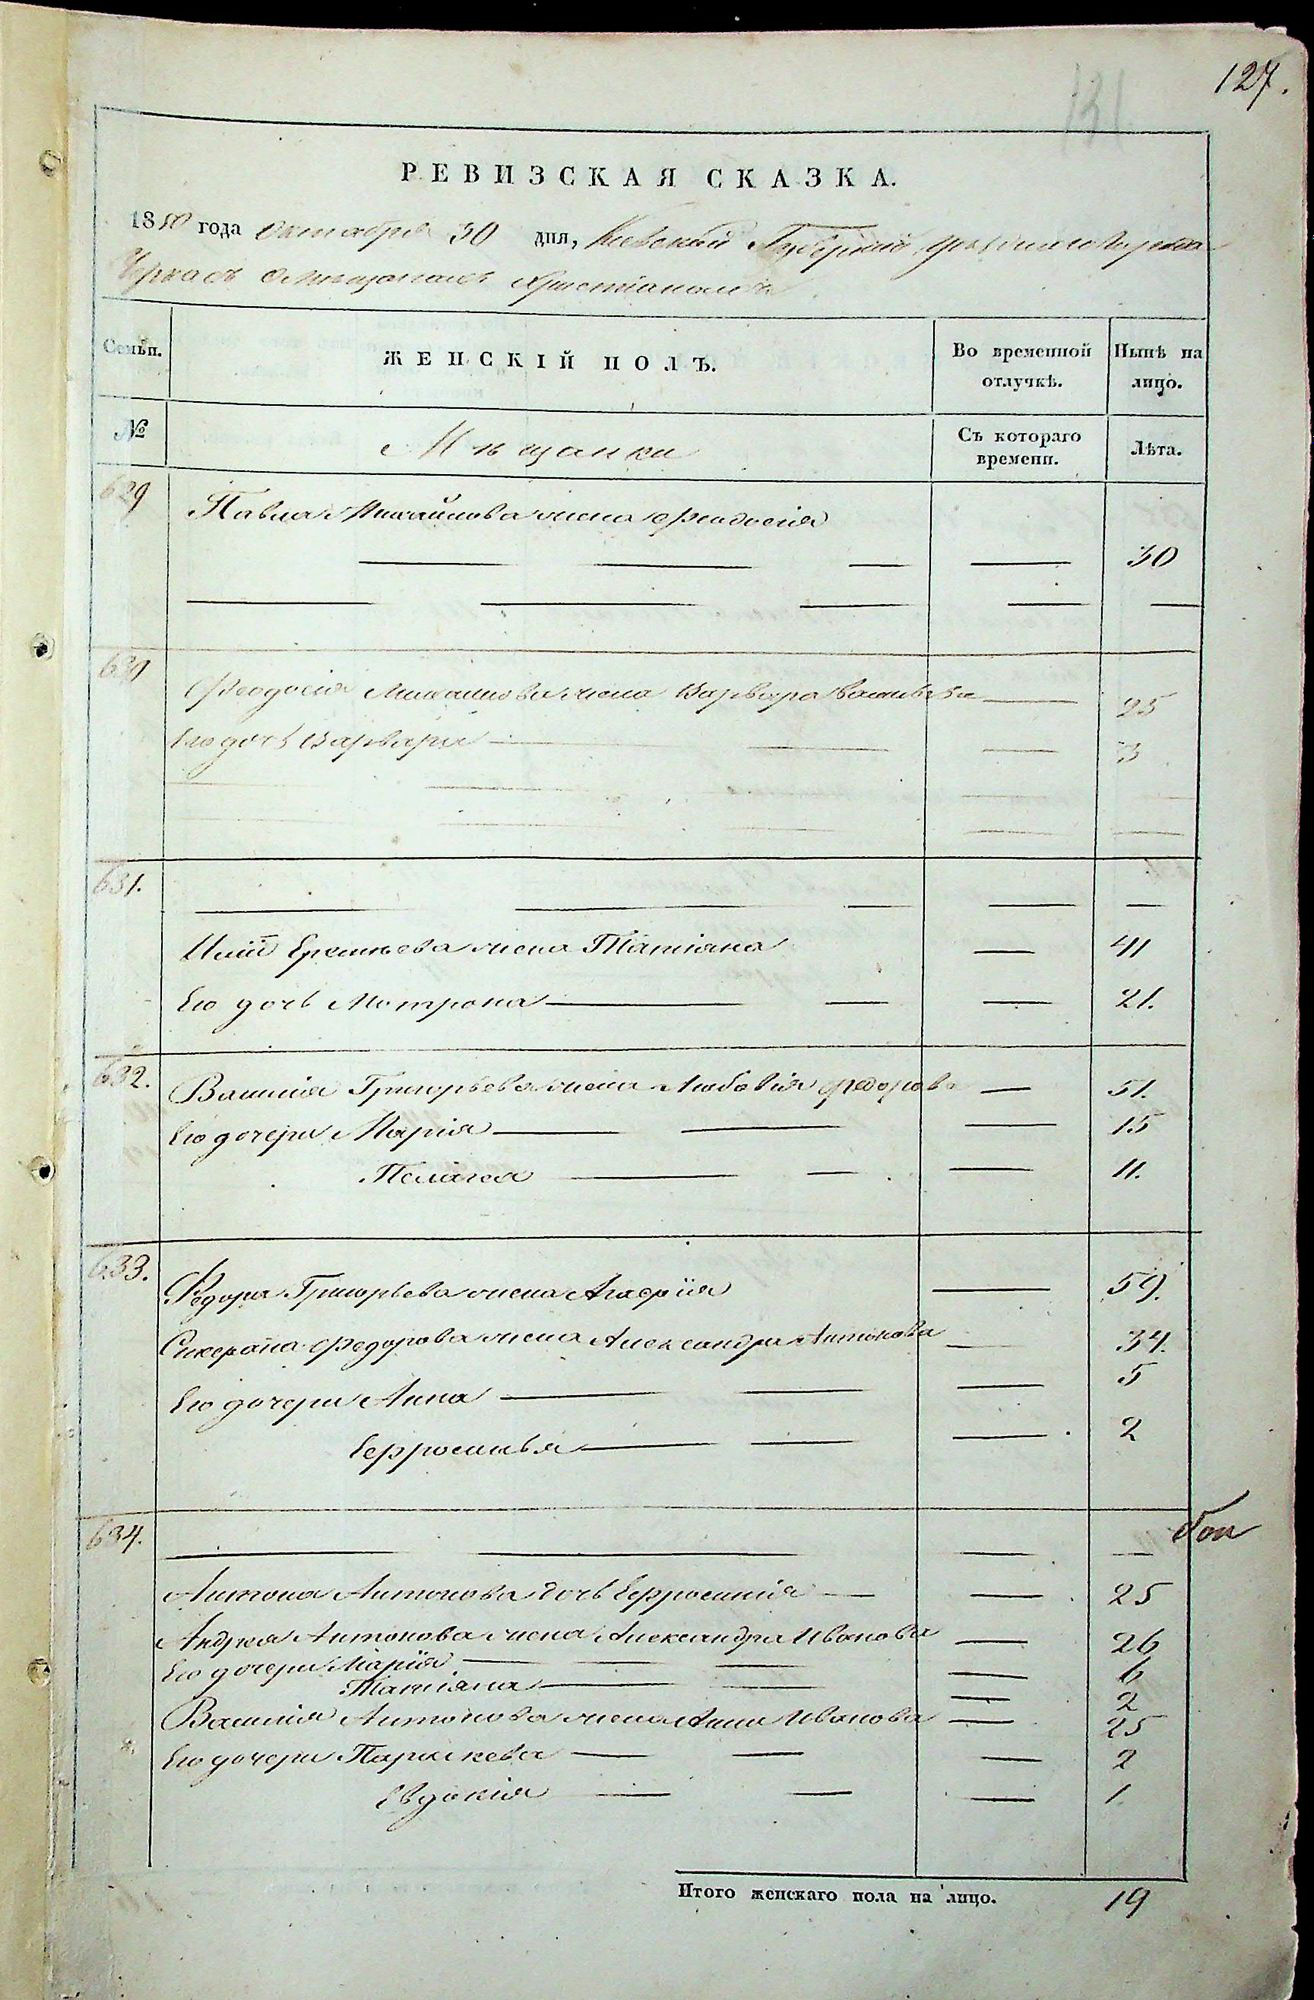 127.
131
РЕВИЗСКАЯ СКАЗКА.
1850 года Октября 30 дня, Киевской Губернiи уезднаго города
Черкасъ о мещанахъ христiанахъ
Семьи. ЖЕНСКІЙ ПОЛЪ. Во временной отлучкѣ. Нынѣ на лицо.
№ Мѣщанки Съ котораго времени. Лѣта.
629 Павла Михайлова жена Феодосія
30
630 Феодосія Михайлова жена Варвара Васильева 25
Его дочь Варвара 3
631.
Иліи Еремѣева жена Татіяна 41
Его дочь Мотрона 21.
632. Василія Григорьева жена Любовія Федорова 51.
Его дочери Марія 15
Пелагея 11.
633. Федора Григорьева жена Агафія 59.
Федорова жена Александра Антонова 34.
Его дочери Анна 5
Ефросинья 2
634.
Антона Антонова дочь Ефросинія 25
Андрея Антонова жена Александра Иванова 26
Его дочери Марія 6
Татіяна 2
Василія Антонова жена Анна Иванова 25
Его дочери Параскева 2
Евдокія 1
Итого женскаго пола на лицо. 19